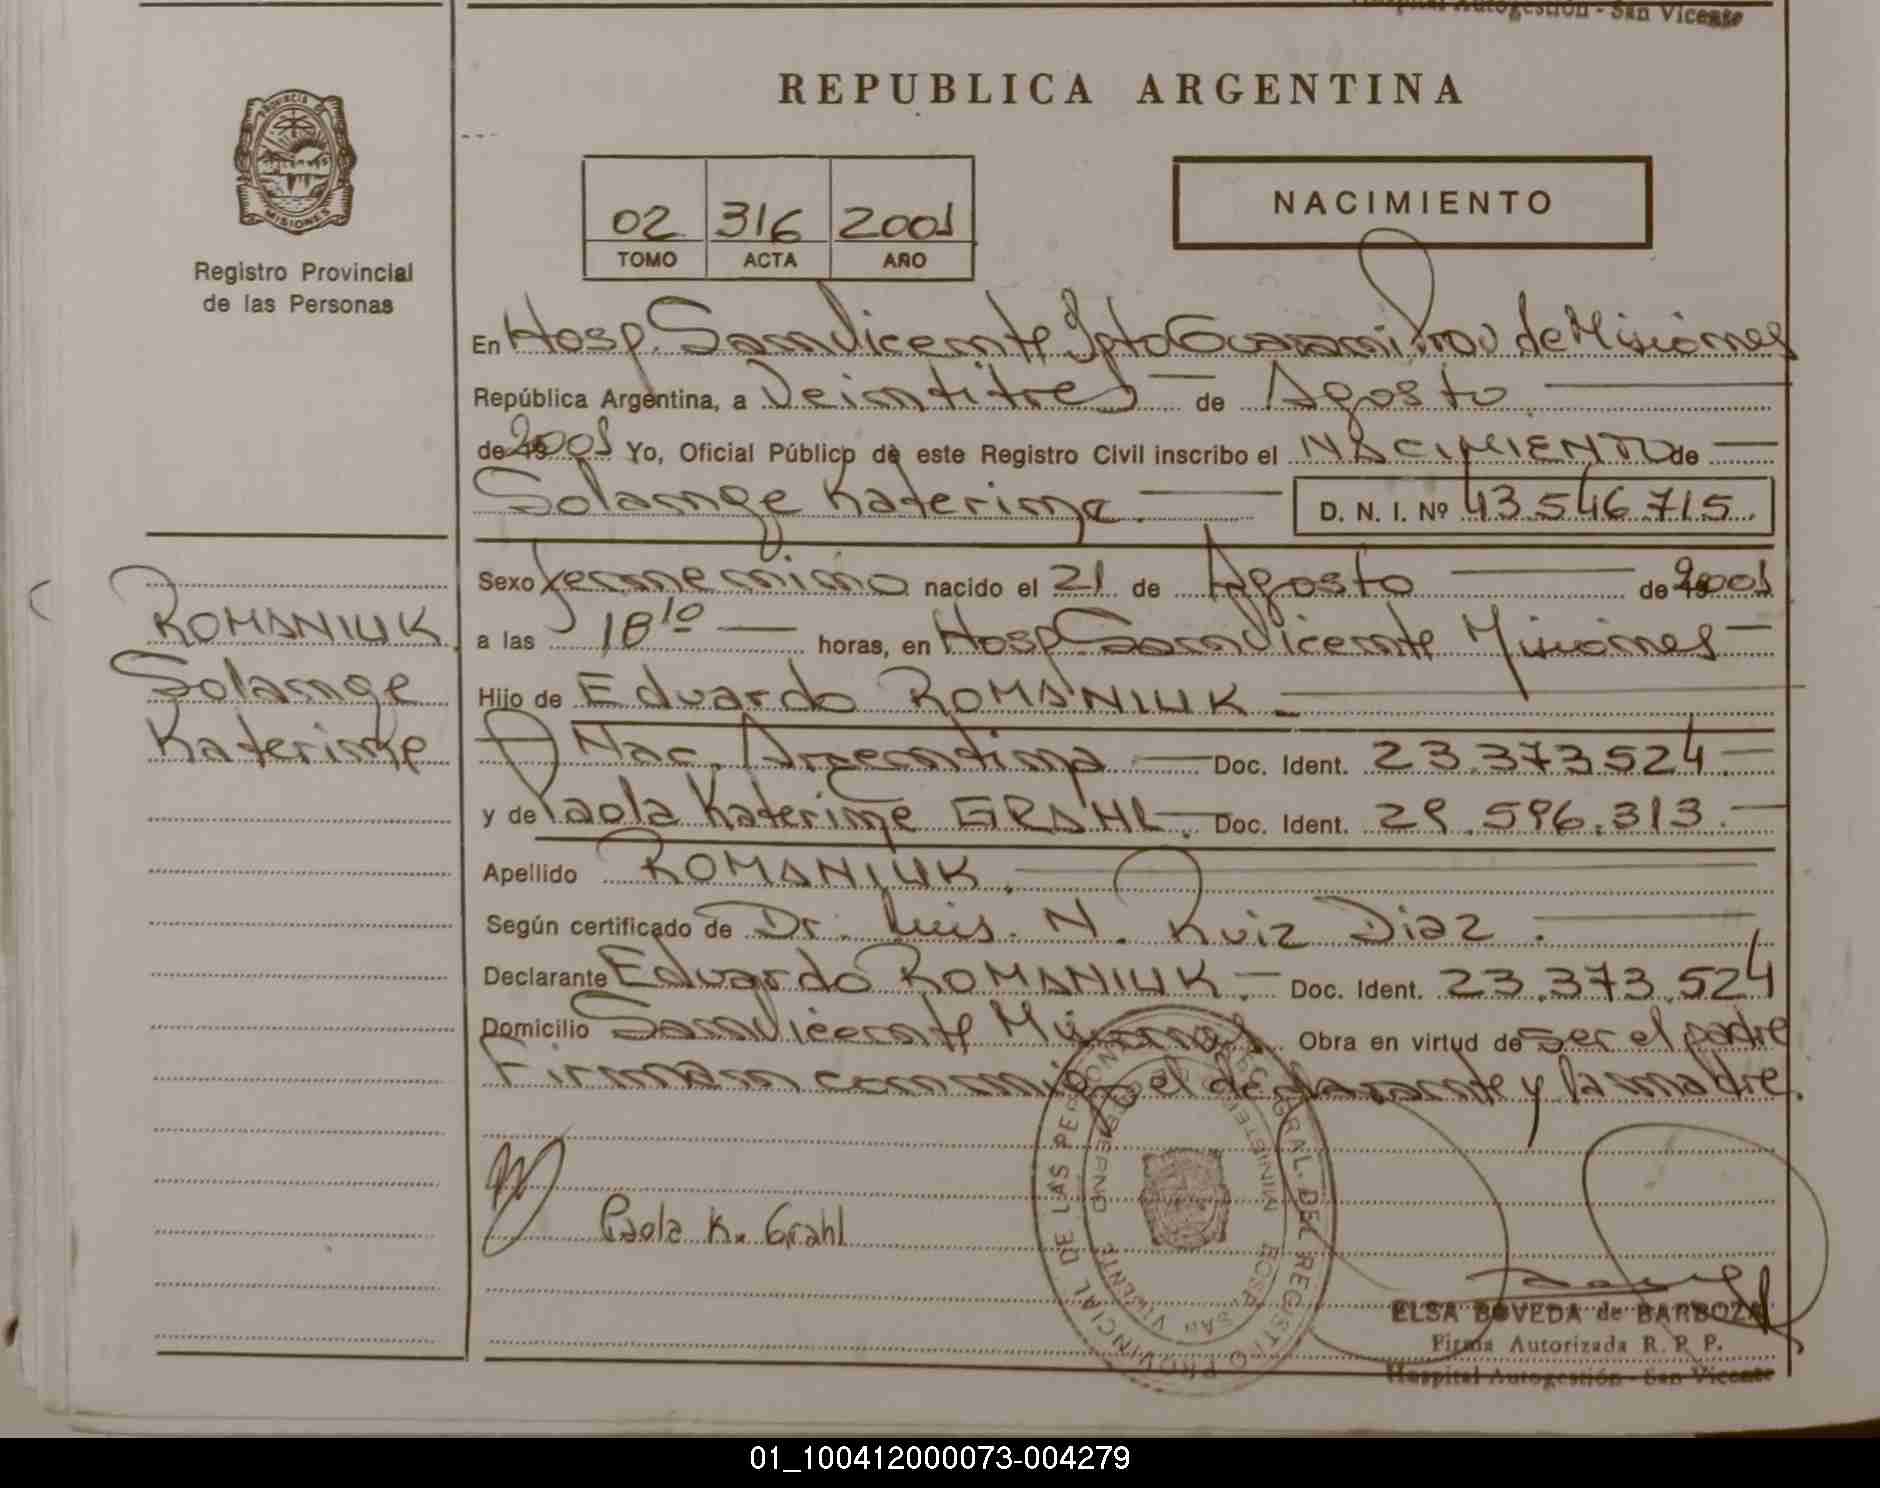 Hospital Autogestión - San Vicente
REPUBLICA ARGENTINA
PROVINCIA DE
MISIONES
Registro Provincial
de las Personas
02 316 2001
TOMO ACTA AÑO
NACIMIENTO
En Hosp. San Vicente Dpto Guarani Prov de Misiones
República Argentina, a Veintitres de Agosto
de 2001 Yo, Oficial Público de este Registro Civil inscribo el NACIMIENTO de
Solange Katerine D. N. I. Nº 43.546.715.
ROMANIUK
Solange
Katerine
Sexo femenino nacido el 21 de Agosto de 2001
a las 18 10 horas, en Hosp. San Vicente Misiones
Hijo de Eduardo ROMANIUK
Nac. Argentina Doc. Ident. 23.373.524
y de Paola Katerine GRAHL. Doc. Ident. 29.596.313.
Apellido ROMANIUK.
Según certificado de Dr. Luis. N. Ruiz Diaz.
Declarante Eduardo ROMANIUK. Doc. Ident. 23.373.524
Domicilio San Vicente Misiones Obra en virtud de ser el padre
Firman conmigo el declarante y la madre.
Paola K. Grahl
GRAL. DEL REGISTRO PROVINCIAL DE LAS PERSONAS
MINISTERIO DE GOBIERNO
HOSP. SAN VICENTE
ELSA BOVEDA de BARBOZA
Firma Autorizada R. P. P.
Hospital Autogestión - San Vicente
01_100412000073-004279